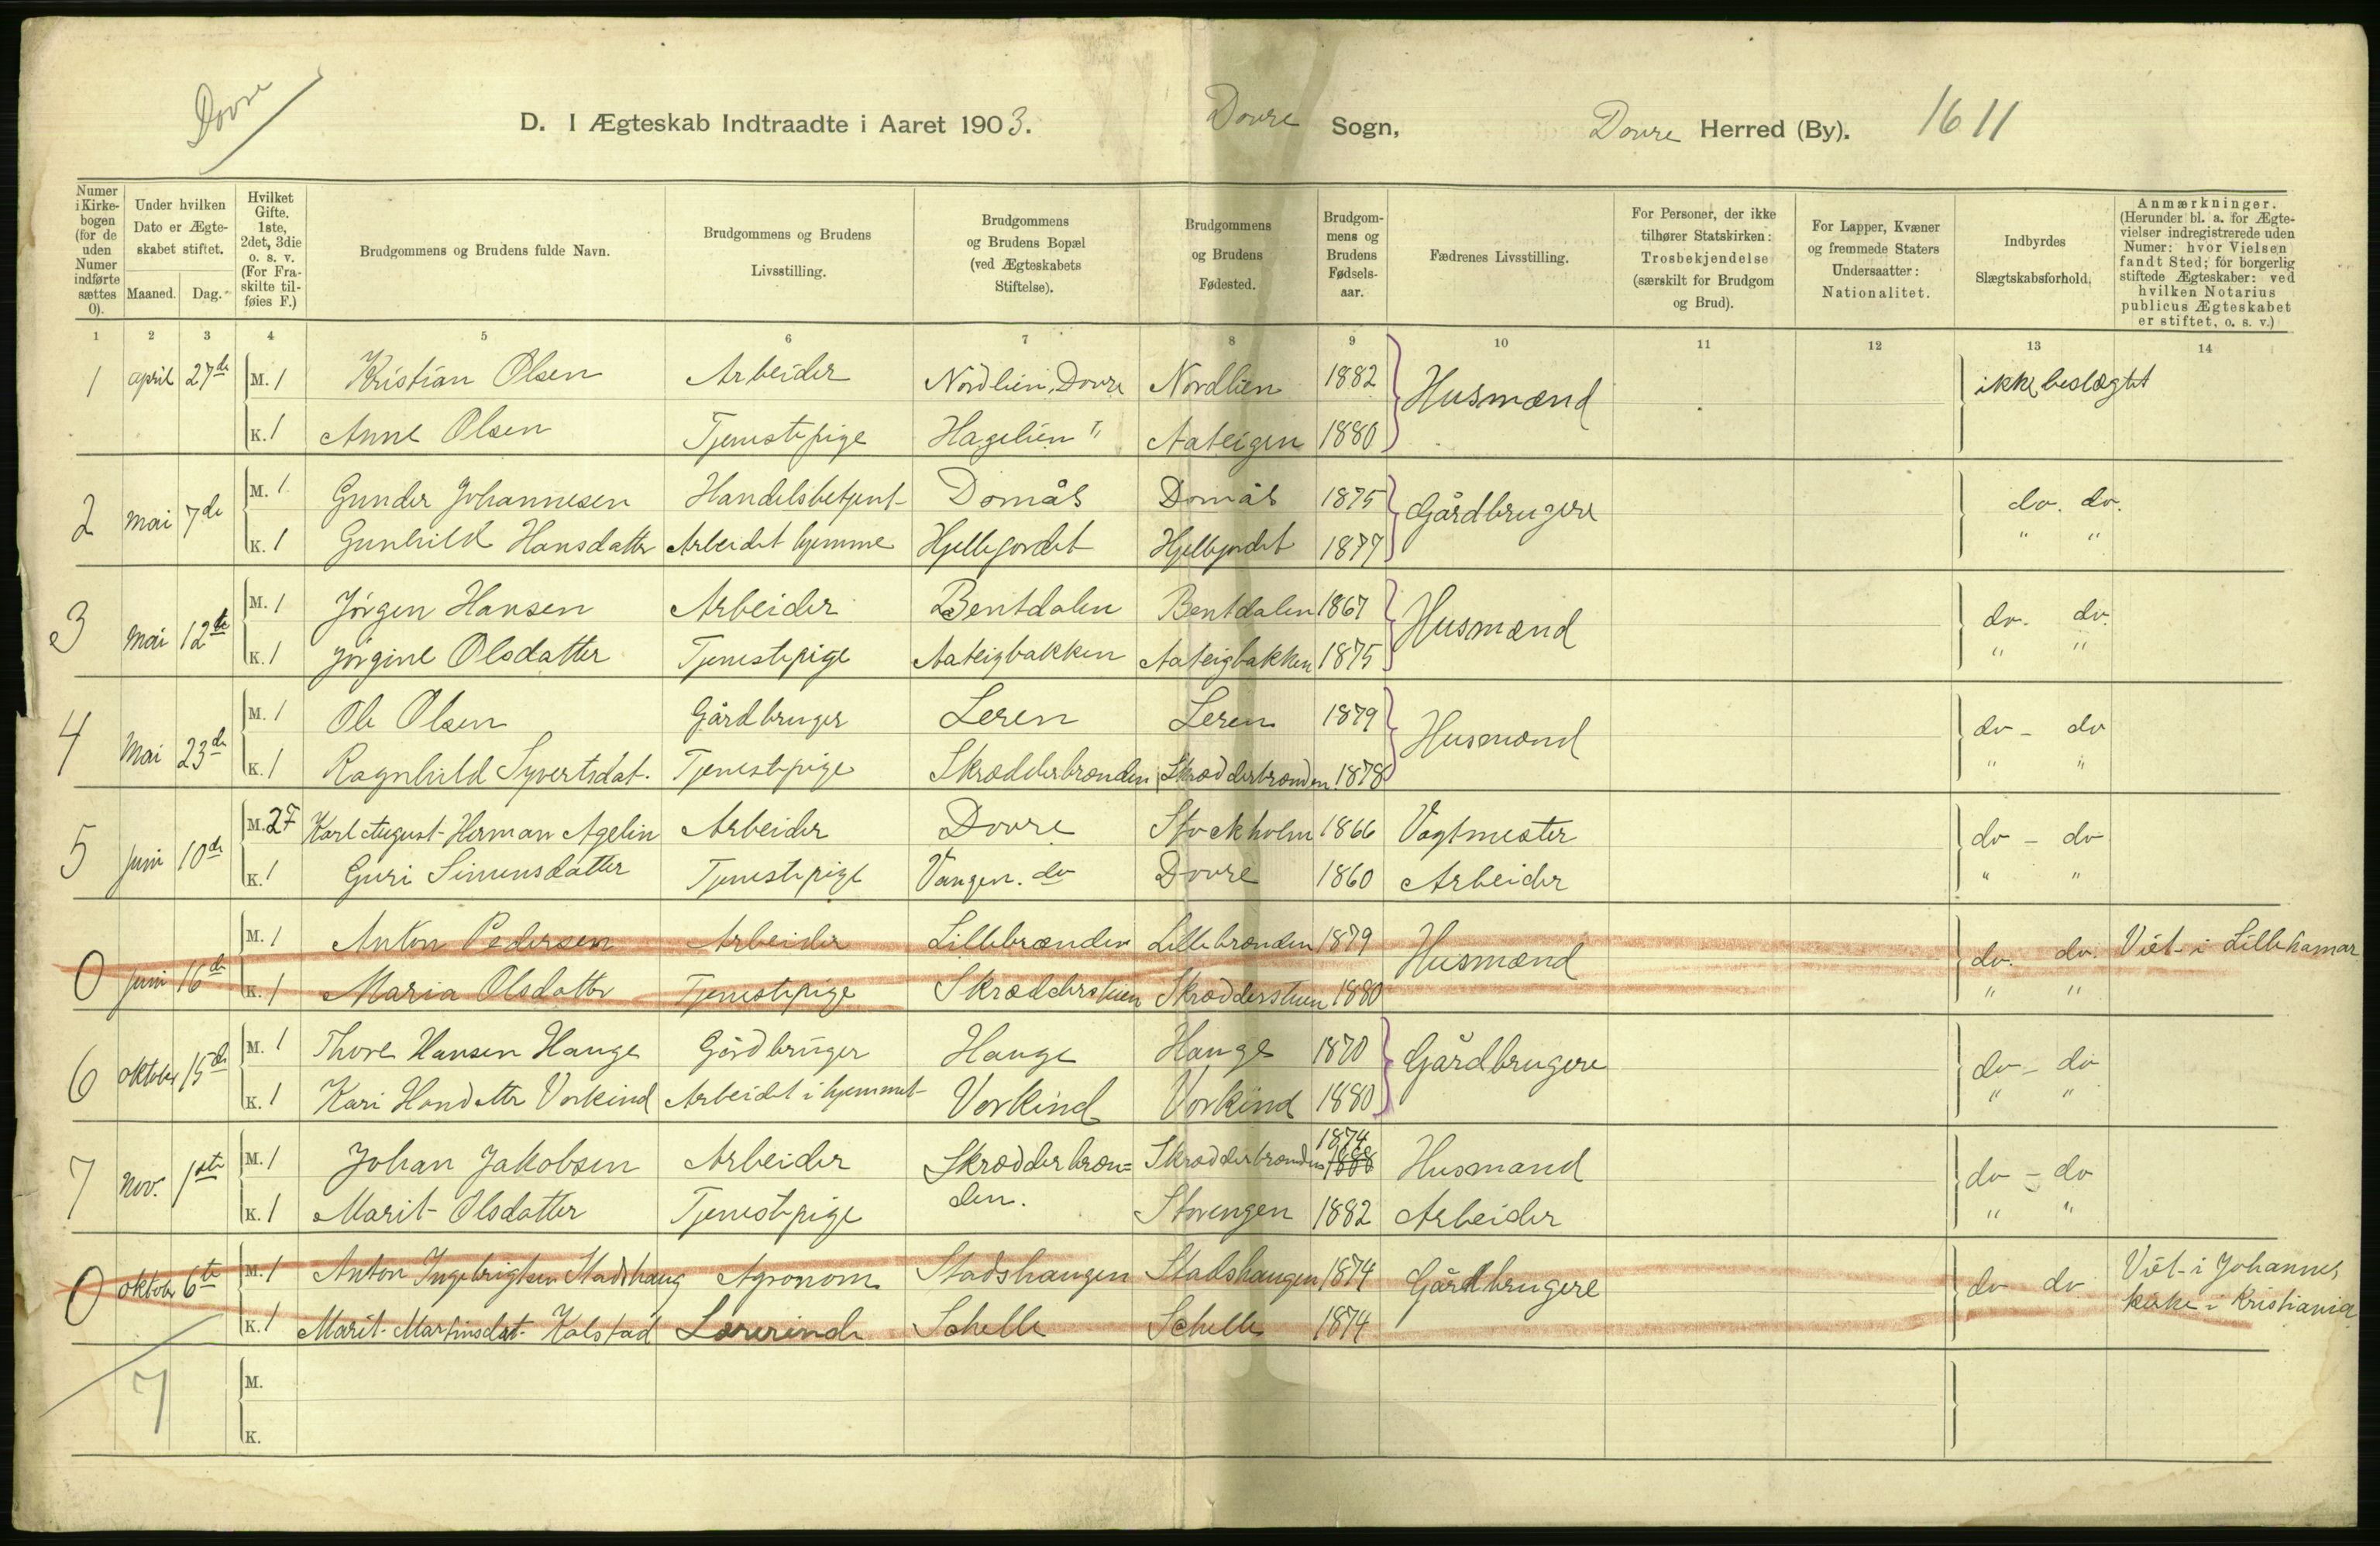 Dovre
D. I Ægteskab Indtraadte i Aaret 1903. Dovre Sogn, Dovre Herred (By). 1611
Numer i Kirkebogen (for de uden Numer indførte sættes 0).
Under hvilken Dato er Ægteskabet stiftet.
Maaned. Dag.
Hvilket Gifte, 1ste, 2det, 3die o. s. v. (For Fraskilte tilføies F.)
Brudgommens og Brudens fulde Navn.
Brudgommens og Brudens Livsstilling.
Brudgommens og Brudens Bopæl (ved Ægteskabets Stiftelse).
Brudgommens og Brudens Fødested.
Brudgommens og Brudens Fødselsaar.
Fædrenes Livsstilling.
For Personer, der ikke tilhører Statskirken: Trosbekjendelse (særskilt for Brudgom og Brud).
For Lapper, Kvæner og fremmede Staters Undersaatter: Nationalitet.
Indbyrdes Slægtskabsforhold.
Anmærkninger. (Herunder bl. a. for Ægtevielser indregistrerede uden Numer: hvor Vielsen fandt Sted; for borgerlig stiftede Ægteskaber: ved hvilken Notarius publicus Ægteskabet er stiftet, o. s. v.)
1 2 3 4 5 6 7 8 9 10 11 12 13 14
1 april 27de M. 1 Kristian Olsen Arbeider Nordlien, Dovre Nordlien 1882 Husmænd ikke beslægtet
K. 1 Anne Olsen Tjenestepige Hagelien " Aateigen 1880
2 Mai 7de M. 1 Gunder Johannesen Handelsbetjent Domås Domås 1875 Gårdbrugere do. do.
K. 1 Gunhild Hansdatter Arbeidet hjemme Hjellejordet Hjellejordet 1877 " "
3 Mai 12te M. 1 Jörgen Hansen Arbeider Bentdalen Bentdalen 1867 Husmænd do. do.
K. 1 Jörgine Olsdatter Tjenestepige Aateigbakken Aateigbakken 1875 " "
4 Mai 23de M. 1 Ole Olsen Gårdbruger Leren Leren 1879 Husmænd do - do
K. 1 Ragnhild Syvertsdat. Tjenestepige Skrædderbrænden Skrædderbrænden 1878 " "
5 juni 10de M. 2 F Karl August Herman Agelin Arbeider Dovre Stockholm 1866 Vagtmester do - do
K. 1 Guri Simensdatter Tjenestepige Vangen. do Dovre 1860 Arbeider " "
0 juni 16de M. 1 Anton Pedersen Arbeider Lillebrænden Lillebrænden 1879 Husmænd do. do. Viet i Lillehamar
K. 1 Maria Olsdatter Tjenestepige Skrædderstuen Skrædderstuen 1880 " "
6 oktober 15de M. 1 Thore Hansen Hauge Gårdbruger Hauge Hauge 1870 Gårdbrugere do - do
K. 1 Kari Hansdatter Vorkind Arbeidet i hjemmet Vorkind Vorkind 1880 " "
1874
7 Nov. 1ste M. 1 Johan Jakobsen Arbeider Skrædderbræn= Skrædderbrænden 1888 Husmand do - do
K. 1 Marit Olsdatter Tjenestepige den. Storengen 1882 Arbeider " "
0 oktober 6te M. 1 Anton Ingebrigtsen Stadshaug Agronom Stadshaugen Stadshaugen 1874 Gårdbrugere do do Viet i Johannes
K. 1 Marit Martinsdat. Kolstad Lærerinde Schelle Schelle 1874 kirke i Kristiania
7 M.
K.